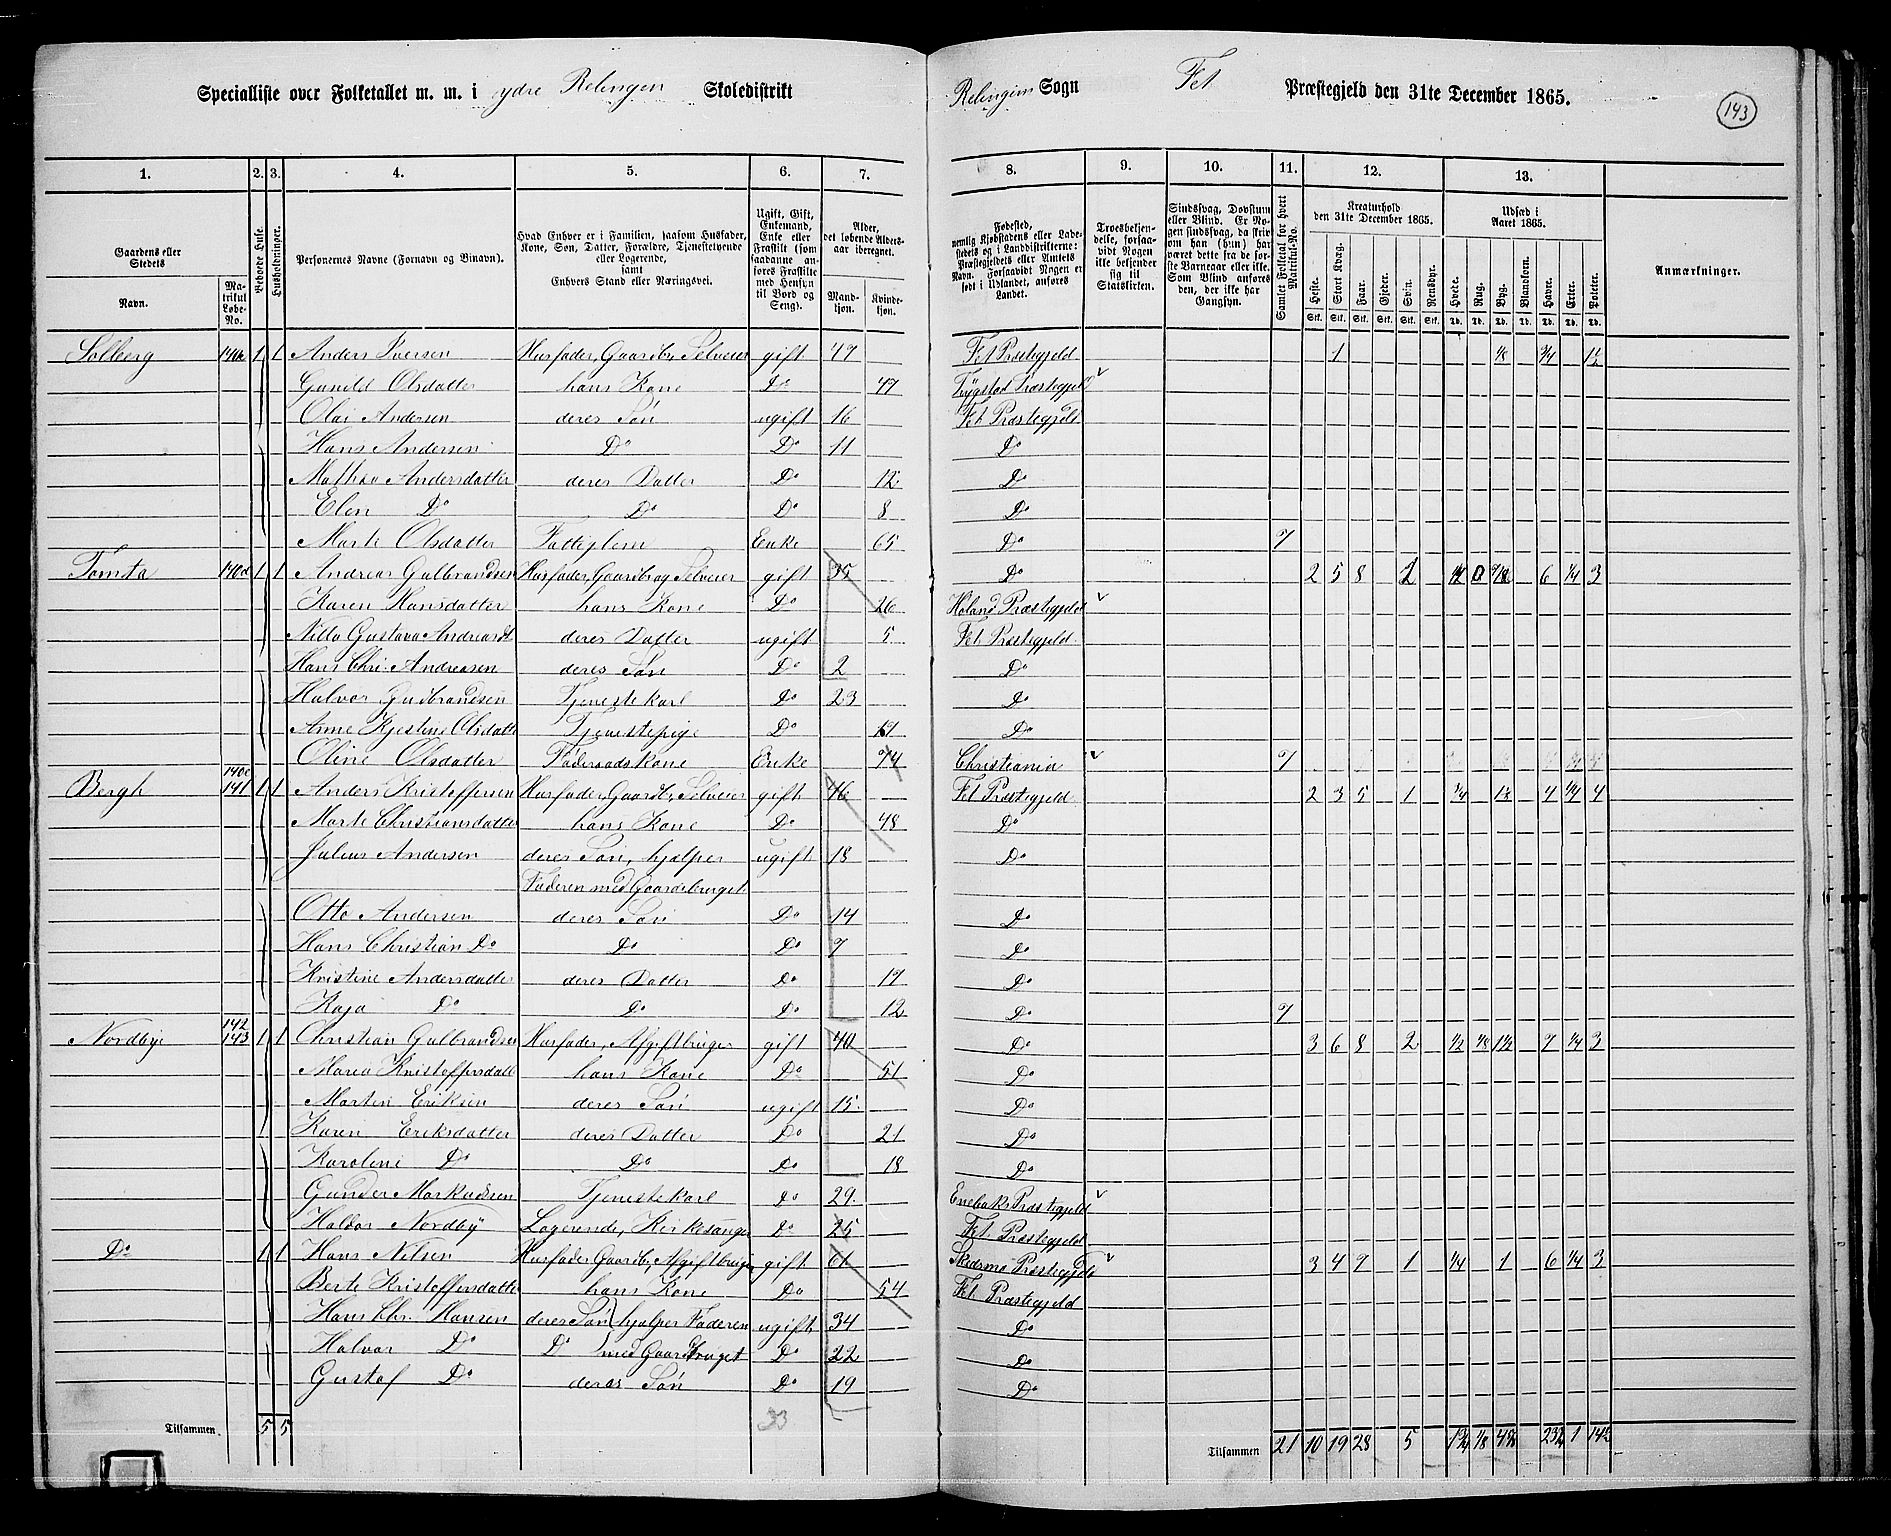 Specialliste over Folketallet m. m. i ydre Relingen Skoledistrikt
Relingens Sogn Fet Præstegjeld den 31te December 1865.
143
1. 2. 3. 4. 5. 6. 7. 8. 9. 10. 11. 12. 13.
Gaardens eller Stedets
Navn.
Matrikul Løbe-No.
Beboede Huse.
Husholdninger.
Personernes Navne (Fornavn og Binavn).
Hvad Enhver er i Familien, saasom Husfader, Kone, Søn, Datter, Forældre, Tjenestetyende eller Logerende, samt Enhvers Stand eller Næringsvei.
Ugift, Gift, Enkemand, Enke eller Fraskilt (som saadanne anføres Fraskilte med Hensyn til Bord og Seng).
Alder, det løbende Aldersaar iberegnet.
Mandkjøn. Kvindekjøn.
Fødested, nemlig Kjøbstadens eller Ladestedets og i Landdistrikterne: Præstegjeldets eller Amtets Navn. Forsaavidt Nogen er født i Udlandet, anføres Landet.
Troesbekjendelse, forsaavidt Nogen ikke bekjender sig til Statskirken.
Sindssvag, Døvstum eller Blind. Er Nogen sindssvag, da skrives om han (hun) har været dette fra de første Barneaar eller ikke. Som Blind anføres den, der ikke har Gangsyn.
Samlet Folketal for hvert Matrikul-No.
Kreaturhold den 31te December 1865.
Heste. Stort Kvæg. Faar. Gjeder. Svin. Rensdyr.
Udsæd i Aaret 1865.
Hvede. Rug. Byg. Blandkorn. Havre. Erter. Poteter.
Stk. Stk. Stk. Stk. Stk. Stk. Td. Td. Td. Td. Td. Td. Td.
Anmærkninger.
Solberg 1 1 Anders Iversen Husfader, Gaardbr. Selveier gift 47 Fet Præstegjeld 1 1/8 3/4 1 1/2
Gunild Olsdatter hans Kone Do 47 Trygstad Præstegjeld
Olai Andersen deres Søn ugift 16 Fet Præstegjeld
Hans Andersen Do Do 11 Do
Mathea Andersdatter deres Datter Do 12 Do
Elen Do Do Do 8 Do
Marte Olsdatter Fattiglem Enke 65 Do 7
Tomta 140d 1 1 Andreas Gulbrandsen Husfader, Gaardbr. og Selveier gift 35 Do 2 5 8 2 6 1/4 3
Karen Hansdatter hans Kone Do 26 Høland Præstegjeld
Gustava Andreasdt deres Datter ugift 5 Fet Præstegjeld
Hans Chr. Andreasen deres Søn Do 2 Do
Halvor Gudbrandsen Tjenestekarl Do 23 Do
Anne Kjestine Olsdatt Tjenestepige Do Do
Oline Olsdatter Føderaadskone Enke 74 Christiania 7
140e
Bergh 141 1 1 Anders Kristoffersen Husfader, Gaardb. Selveier gift 46 Fet Præstegjeld 2 3 5 1 1/4 4 1/4 4
Marte Christiansdatter hans Kone Do 48 Do
Julius Andersen deres Søn, hjælper ugift 18 Do
Faderen med Gaardsbruget
Otto Andersen deres Søn Do 14 Do
Hans Christian Do Do Do 7 Do
Kristine Andersdatter deres Datter Do 17 Do
Kaja Do Do Do 12 Do 7
142
Nordbye 143 1 1 Christian Gulbrandsen Husfader, Afgiftbruger gift 40 Do 3 6 8 2 1/2 1/8 1 1/2 7 1/4 3
Maria Kristoffersdatt hans Kone Do 51 Do
Martin Eriksen deres Søn ugift 15 Do
Karen Eriksdatter deres Datter Do 21 Do
Karoline Do Do Do 18 Do
Gunder Markussen Tjenestekarl Do 29 Enebak Præstegjeld
Haldor Nordby Logerende, Kirkesanger Do 25 Fet Præstegjeld
Do 1 1 Hans Nilsen Husfader, Gaardbr. Afgiftbruger gift 61 Skedsmo Præstegjeld 3 4 7 1 1/4 1 6 1/4 3
Berte Kristoffersdatter hans Kone Do 54 Fet Præstegjeld
Hans Chr. Hansen deres Søn hjælper Faderen ugift 34 Do
Halvor Do Do med Gaardbruget Do 22 Do
Gustaf Do deres Søn Do 19 Do
Tilsammen 5 5 33
Tilsammen 21 10 19 28 5 1 3/4 1/8 4 3/8 23 3/4 1 14 1/2